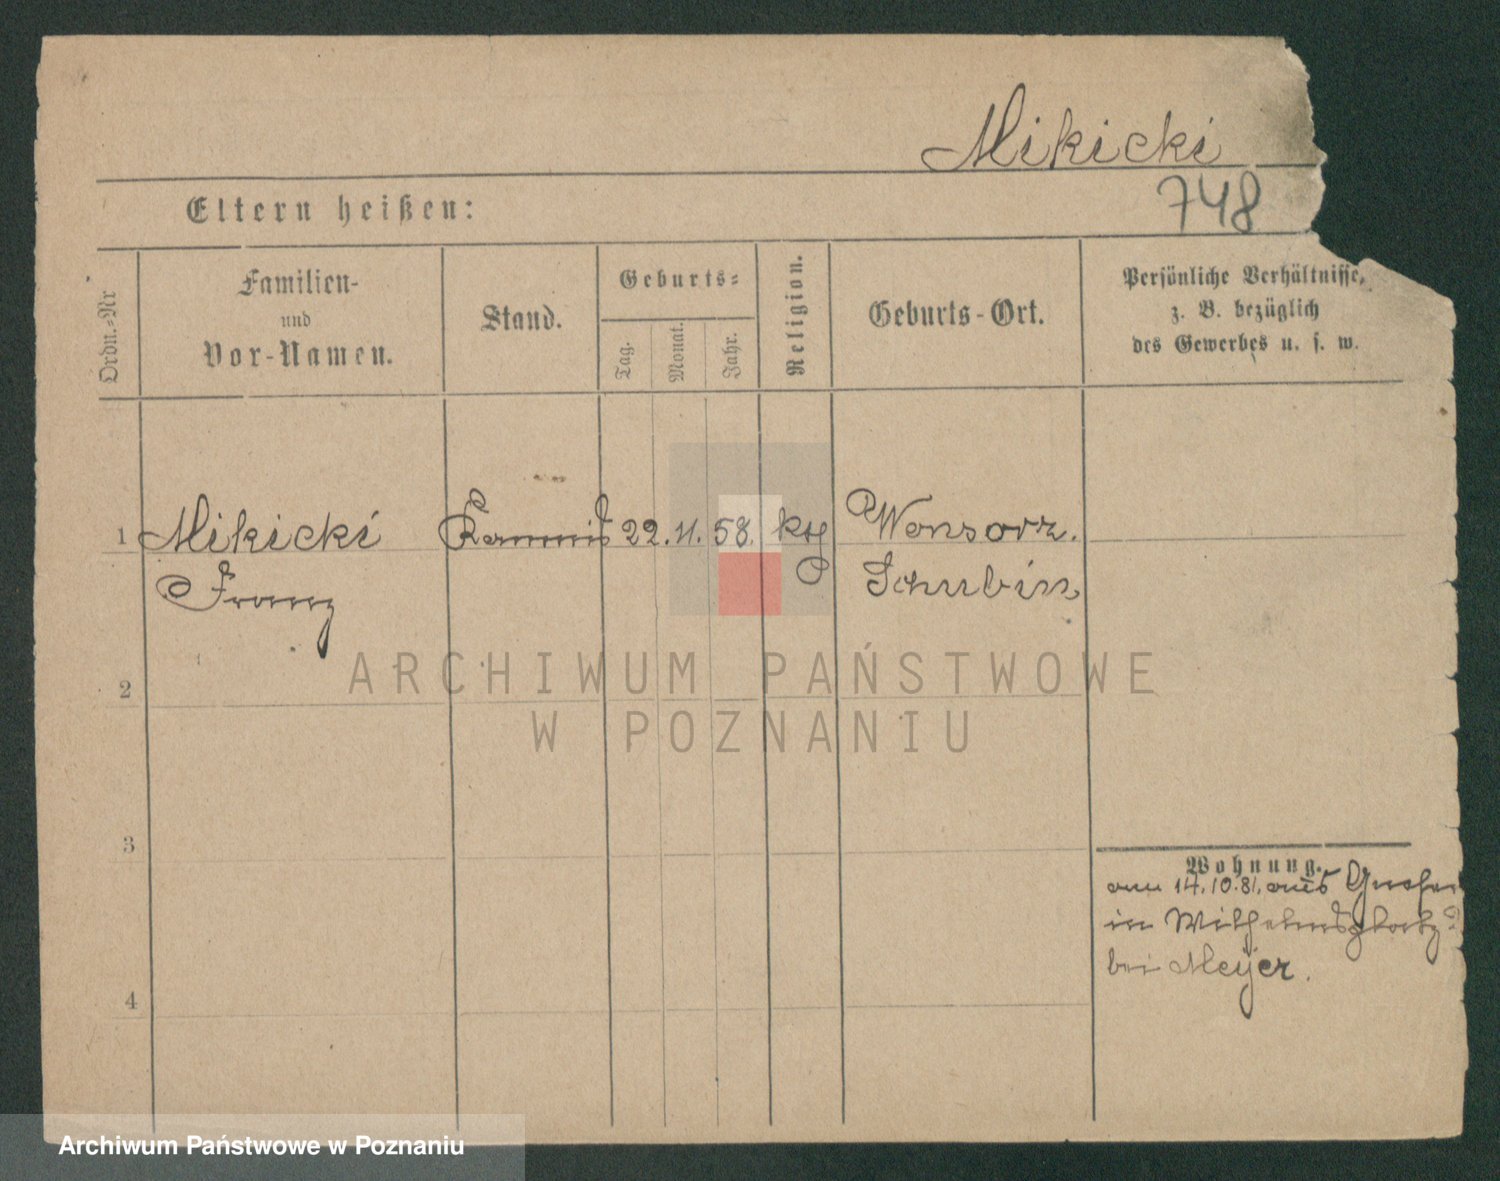 Mikicki
Eltern heißen:
748
Ordn.-Nr
Familien-
und
Vor-Namen.
Stand.
Geburts-
Tag.
Monat.
Jahr.
Religion.
Geburts-Ort.
Persönliche Verhältnisse,
z. B. bezüglich
des Gewerbes u. s. w.
1 Mikicki Kommis 22. 11. 58. kth Wonsorz.
Franz Schubin
2
3
4
Wohnung.
am 14.10.81. aus Gnesen
in Wilhelmsplatz
bei Meÿer.
ARCHIWUM PAŃSTWOWE
W POZNANIU
Archiwum Państwowe w Poznaniu